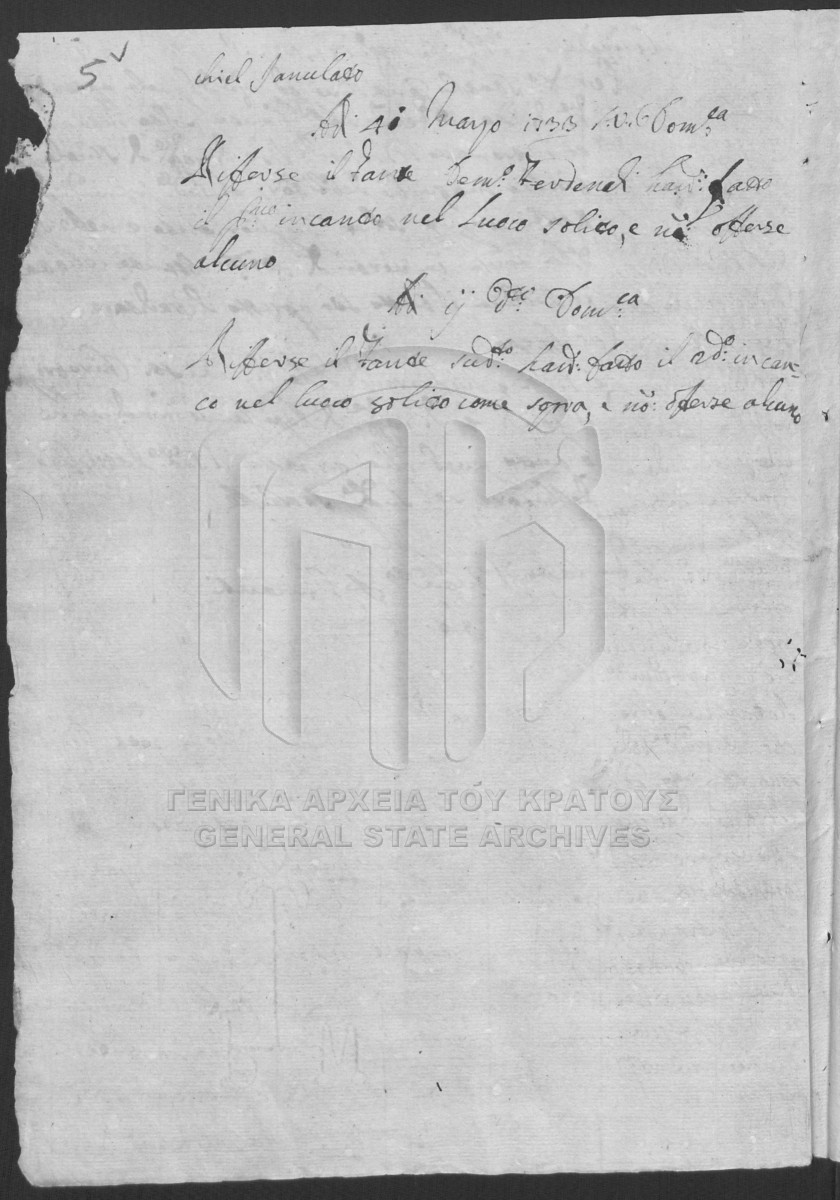 5v
chiel Janulato
Adi 4 Marzo 1733 S.V. Dom.ca
Rifferse il Fante Dem.o haver fatto
il p.mo incanto nel Luoco solito, e nō offerse
alcuno
Adi ij d.to Dom.ca
Rifferse il Fante sud.to haver fatto il 2do: incan-
to nel luoco solito come sopra, e nō: offerse alcuno
ΓΕΝΙΚΑ ΑΡΧΕΙΑ ΤΟΥ ΚΡΑΤΟΥΣ
GENERAL STATE ARCHIVES